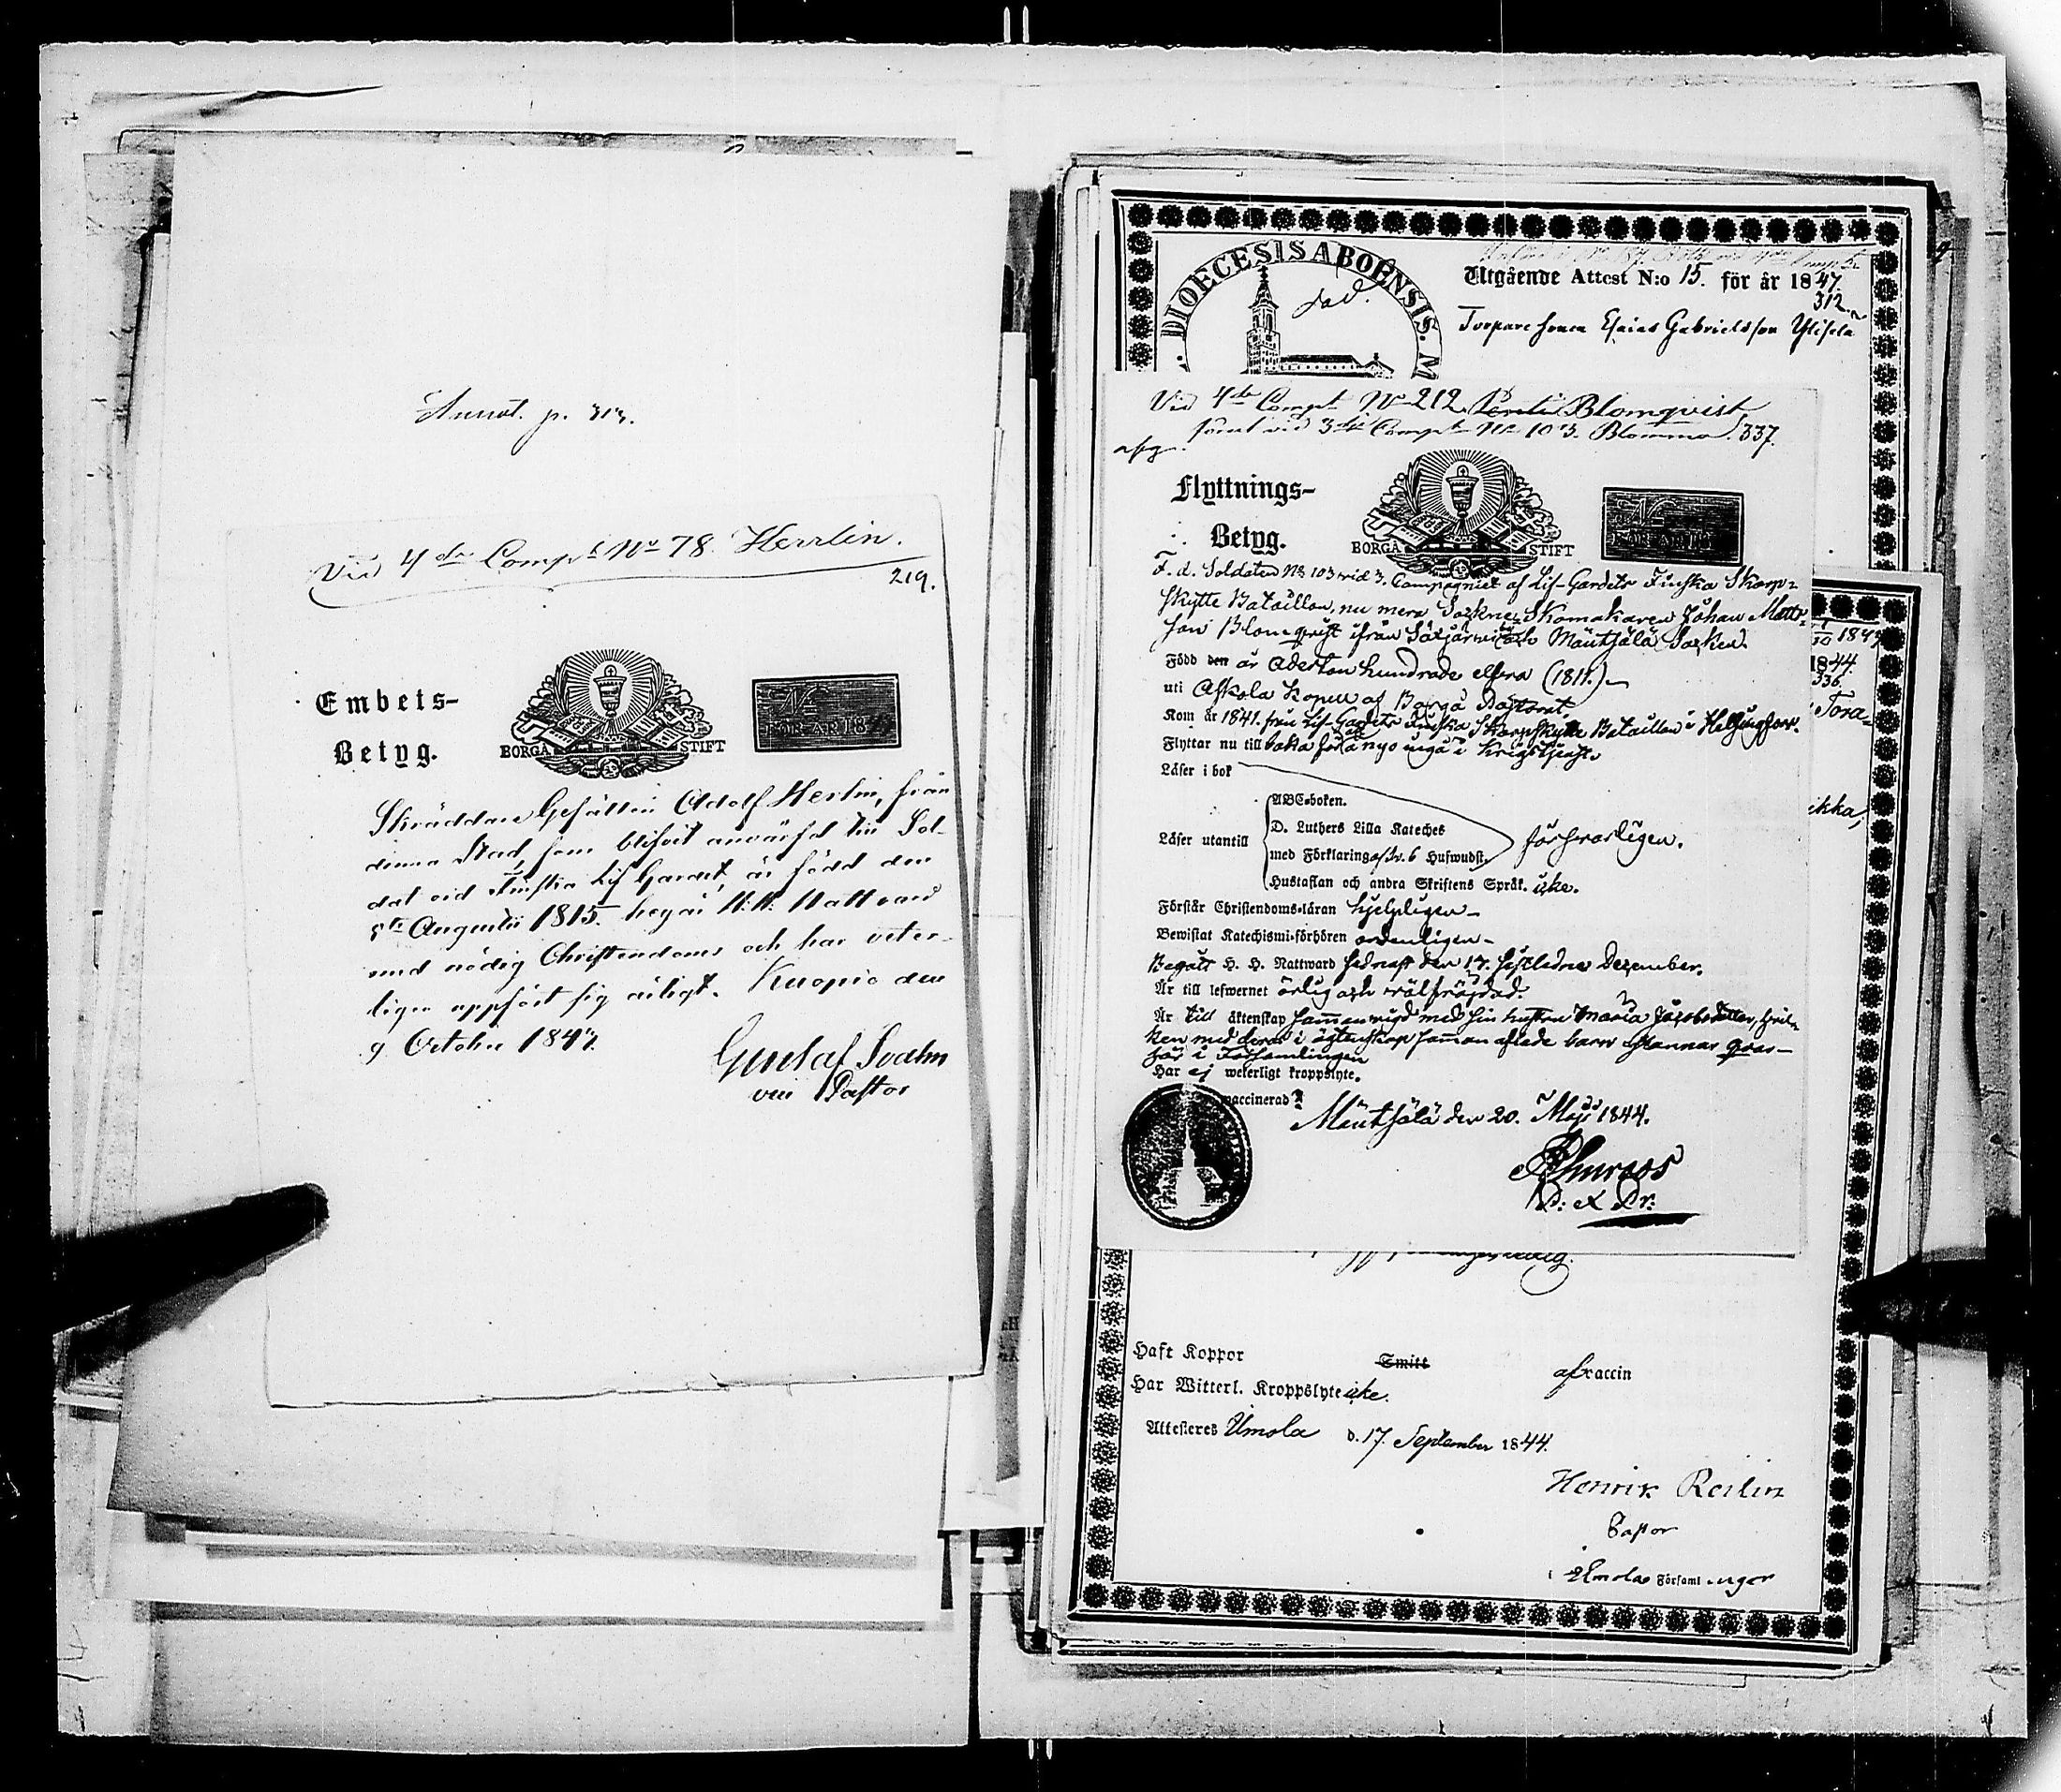 Annot. p. 313.
Vid 4de Compt No 78 Herrlin.
219.
Embets-
Betyg.
BORGÅ STIFT
FÖR ÅR 184
Skräddare Gesällen Adolf Herlin, från
denna Stad, som blifvit anvärfd till Sol-
dat vid Finska Lif Gardet, är född den
5te Augustii 1815. begår H: H: Nattvard
med nödig Christendoms och har veter-
ligen uppfört sig ärligt. Kuopio den
9 October 1843.
Gustaf
vice Pastor
DIOECESIS ABOËNSIS. M
Utgående Attest N:o 15. för år 1847.
312
Torpare sonen Esaias Gabrielsson Ylisela
Vid 4de Compt No 212. Blomqvist
samt vid 3die Compt No 103. Blomma. 337.
afg.
Flyttnings-
Betyg.
BORGÅ STIFT
F. d. Soldaten No 103 wid 3. Compagniet af Lif-Gardets Finska Skarp-
skytte Bataillon, nu mera Sockne-Skomakaren Johan Matts-
son Blomqvist ifrån och Mäntsälä Socken.
Född den år Aderton hundrade elfva (1811.)
uti Askola Kapell af Borgå Pastorat.
Kom år 1841. från Lif-Gardets Finska Skarpskytte Bataillon i Helsingfors.
Flyttar nu tillbaka för att å nyo ingå i Krigstjenst.
Läser i bok
ABC-boken.
D. Luthers Lilla Kateches
Läser utantill
med Förklaring af Dr. 6 Hufwudst.
försvarligen.
Hustaflan och andra Skriftens Språk. icke.
Förstår Christendoms-läran hjelpligen
Bewistat Katechismi-förhören ordentligen
Begått H. H. Nattward sednast den 17. sistledne December.
Är till lefwernet ärlig och välfräjdad.
Är till äktenskap sammanvigd med sin hustru Maria Jacobsdotter, hvil-
ken med deras i ägtenskap samman aflade barn stannar qvar
här i Församlingen
Har ej weterligt kroppslyte.
vaccinerad
Mäntsälä den 20. Maji 1844.
1844.
336.
ikka,
Haft Koppor Smitt af vaccin
Har Witterl. Kroppslyte icke.
Attesteres Urnola d. 17. September 1844.
Henrik Reilin
Pastor
Församlingar